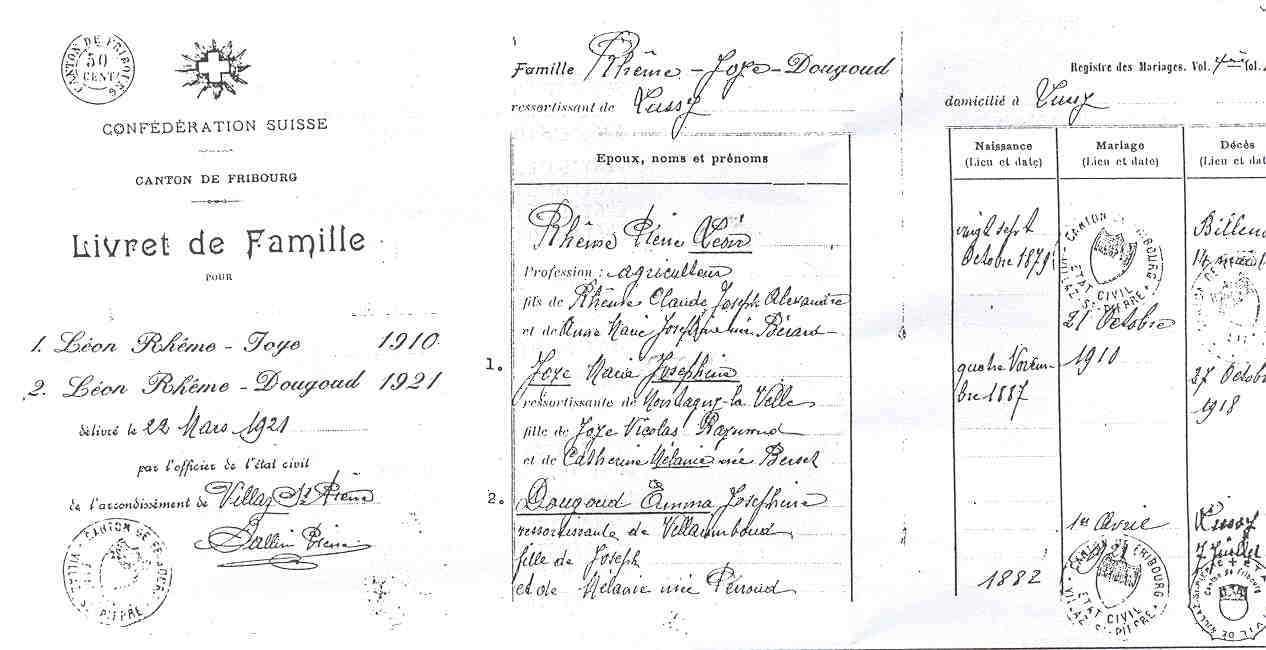 CANTON DE FRIBOURG
50
CENT.
CONFÉDÉRATION SUISSE
CANTON DE FRIBOURG
Livret de Famille
POUR
1. Léon Rhême - Joye 1910
2. Léon Rhême - Dougoud 1921
délivré le 22 Mars 1921
par l'officier de l'état civil
de l'arrondissement de Villaz St Pierre
Pierre
CANTON DE FRIBOURG
VILLAZ-St-PIERRE
Famille Rhême - Joye - Dougoud
ressortissant de Lussy
Epoux, noms et prénoms
Rhême Pierre Léon
Profession : agriculteur
fils de Rhême Claude Joseph Alexandre
et de Anna Marie Josephine née Bérard
1. Joye Marie Josephine
ressortissante de Montagny-la-Ville
fille de Joye Nicolas Raymond
et de Catherine Mélanie née
2. Dougoud Emma Josephine
ressortissante de Villarimboud
fille de Joseph
et de Mélanie née Perroud
Registre des Mariages. Vol.
domicilié à Lussy
Naissance
(Lieu et date)
Mariage
(Lieu et date)
Décès
(Lieu et dat
vingt sept
Octobre 1879
CANTON DE FRIBOURG
ÉTAT CIVIL
VILLAZ-St-PIERRE
21 Octobre
1910
Billen
14
quatre Novem-
bre 1887
27 Octob
1918
1882
1er Avril
1921
CANTON DE FRIBOURG
ÉTAT CIVIL
VILLAZ-St-PIERRE
Lussy
7 Juillet
Canton de Fribourg